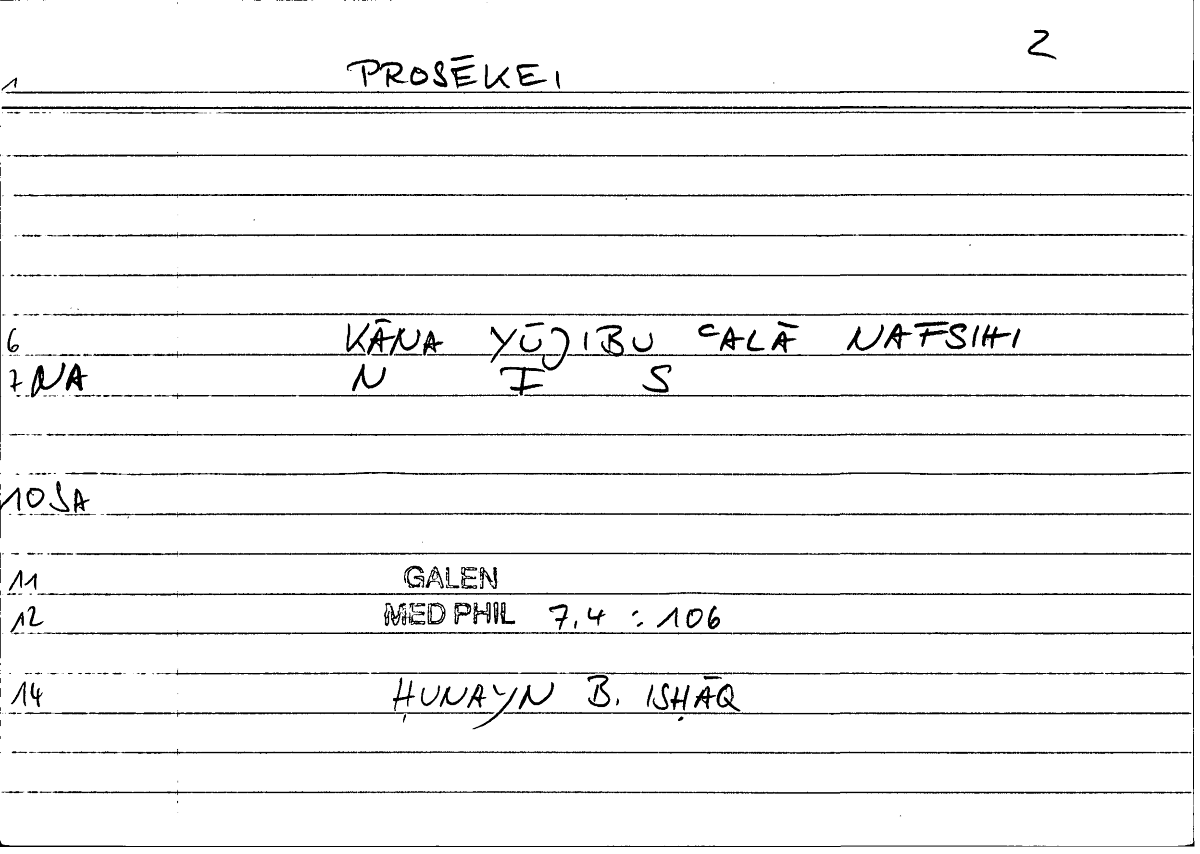 2
1 PROSĒKEI
6 KĀNA YŪJIBU ʿALĀ NAFSIHI
7 NA N F S
10 SA
11 GALEN
12 MED PHIL 7,4 : 106
14 ḤUNAYN B. ISḤĀQ